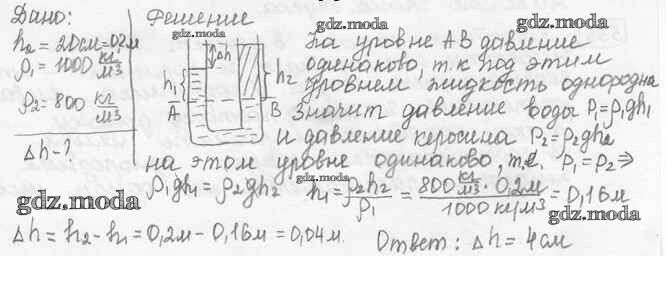 Дано:
h₂ = 20см = 0,2м
ρ₁ = 1000 кг/м³
ρ₂ = 800 кг/м³
Δh - ?
Решение
gdz.moda
gdz.moda
gdz.moda
Δh
h₁
h₂
A
B
На уровне АВ давление
одинаково, т.к под этим
уровнем жидкость однородна
Значит давление воды P₁=ρ₁gh₁
и давление керосина P₂=ρ₂gh₂
на этом уровне одинаково, т.е. P₁=P₂ ⇒
gdz.moda
gdz.moda
gdz.moda
gdz.moda
ρ₁gh₁ = ρ₂gh₂ h₁ = ρ₂h₂/ρ₁ = 800 кг/м³ · 0,2м / 1000 кг/м³ = 0,16м
gdz.moda
gdz.moda
Δh = h₂ - h₁ = 0,2м - 0,16м = 0,04м. Ответ: Δh = 4см